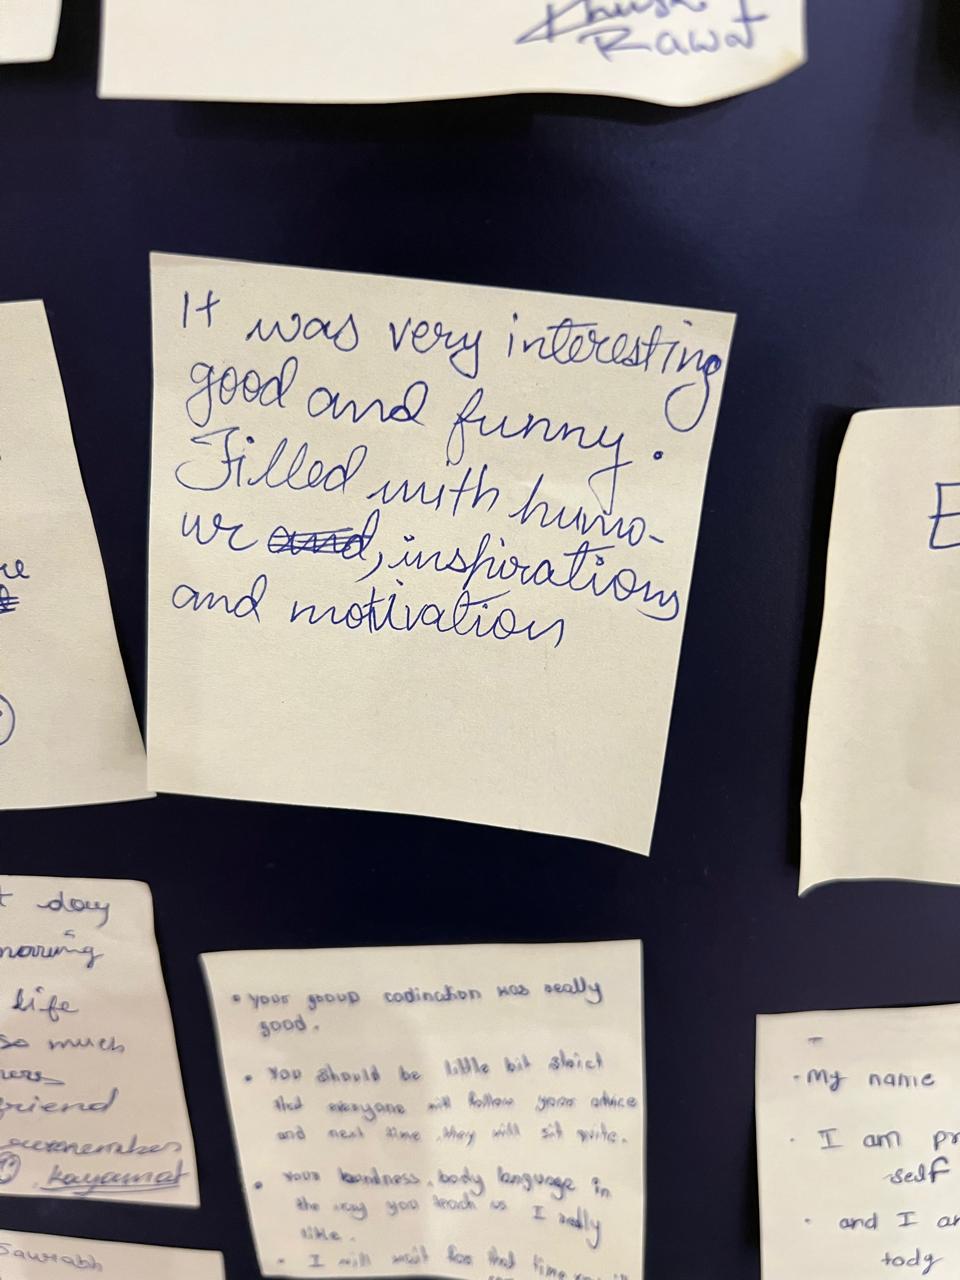 Rawat
It was very interesting
good and funny.
Filled with humo-
ur and, inspirations
and motivation
E
day
life
so much
friend
kayamat
Saurabh
• Your group codination was really
good.
• You should be little bit strict
that everyone will follow your advice
and next time they will sit quite.
• Your kindness, body language in
the way you teach us I really
like.
• I will wait for that time
- My name
• I am pr
self
• and I a
tody